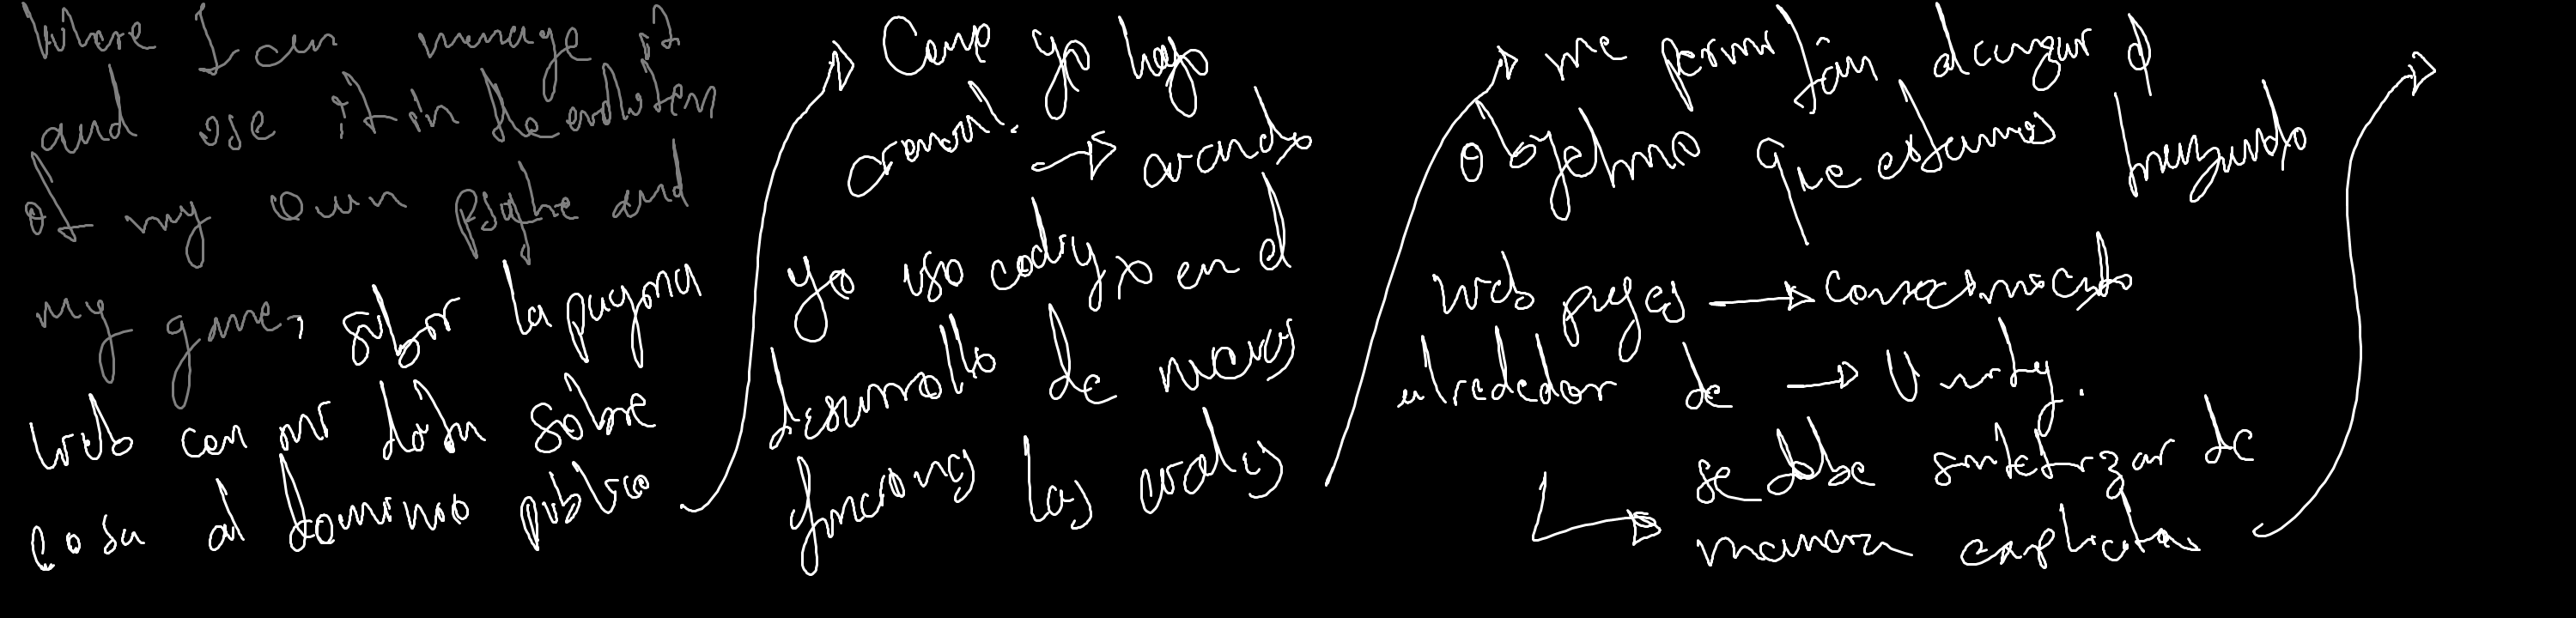 Where I can manage it
and use it in the evolution
of my own psyche and
my game, subir la pagina
web con mi data sobre
cosa al dominio publico
→ Como yo hago
→ cuando
yo uso codigo en el
desarrollo de nuevas
funciones las cuales
→ me permitan alcanzar el
objetivo que estamos
web pages → conocimiento
alrededor de → Unity.
↳ se debe sintetizar de
manera explicita